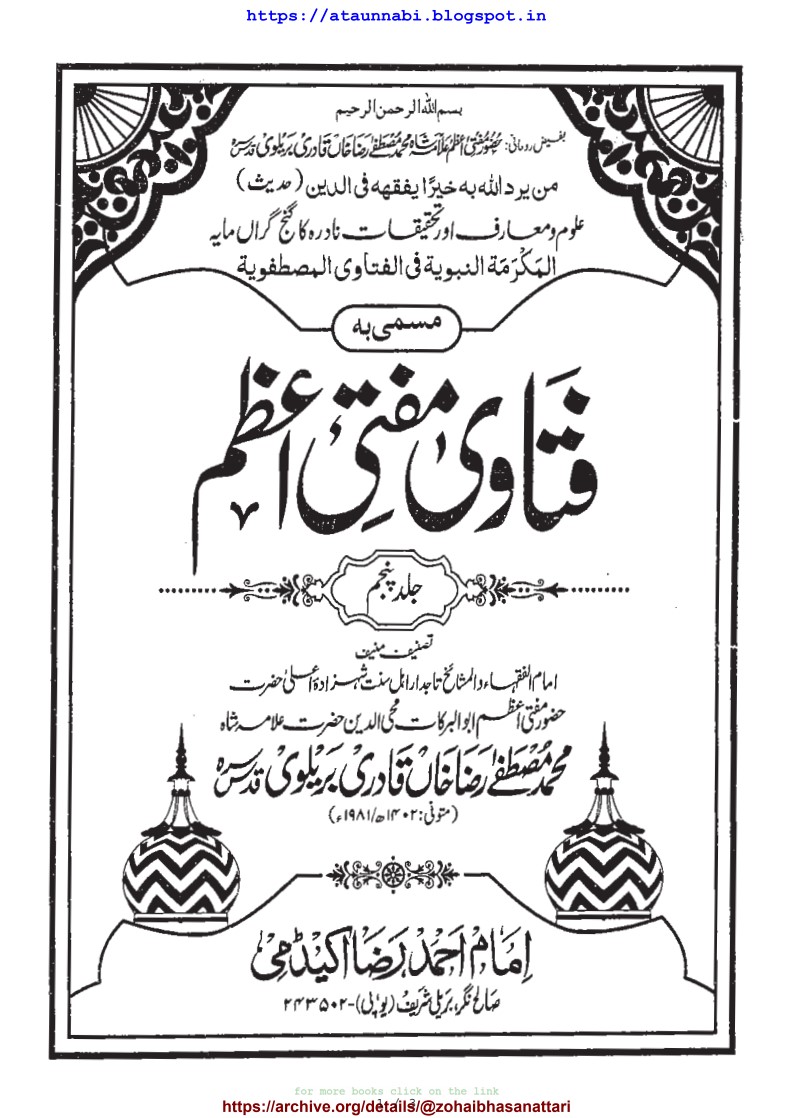 https://ataunnabi.blogspot.in
بسم الله الرحمن الرحيم
بفیض روحانی: حضور مفتی اعظم علامہ شاہ محمد مصطفےٰ رضا خاں قادری بریلوی قدس سرہ
من يرد الله به خيرًا يفقهه فى الدين (حديث)
علوم و معارف اور تحقیقات نادرہ کا گنج گراں مایہ
المَكرَمَة النبوية فى الفتاوى المصطفوية
مسمى به
فتاویٰ مفتیِ اعظم
جلد پنجم
تصنیف منیف
امام الفقہاء والمشائخ تاجدار اہل سنت شہزادۂ اعلیٰ حضرت
حضور مفتی اعظم ابوالبرکات محی الدین حضرت علامہ شاہ
محمد مصطفےٰ رضا خاں قادری بریلوی قدس سرہ
(متوفی: ۱۴۰۲ھ/۱۹۸۱ء)
امام احمد رضا اکیڈمی
صالح نگر، بریلی شریف (یوپی)-۲۴۳۵۰۲
for more books click on the link
https://archive.org/details/@zohaibhasanattari